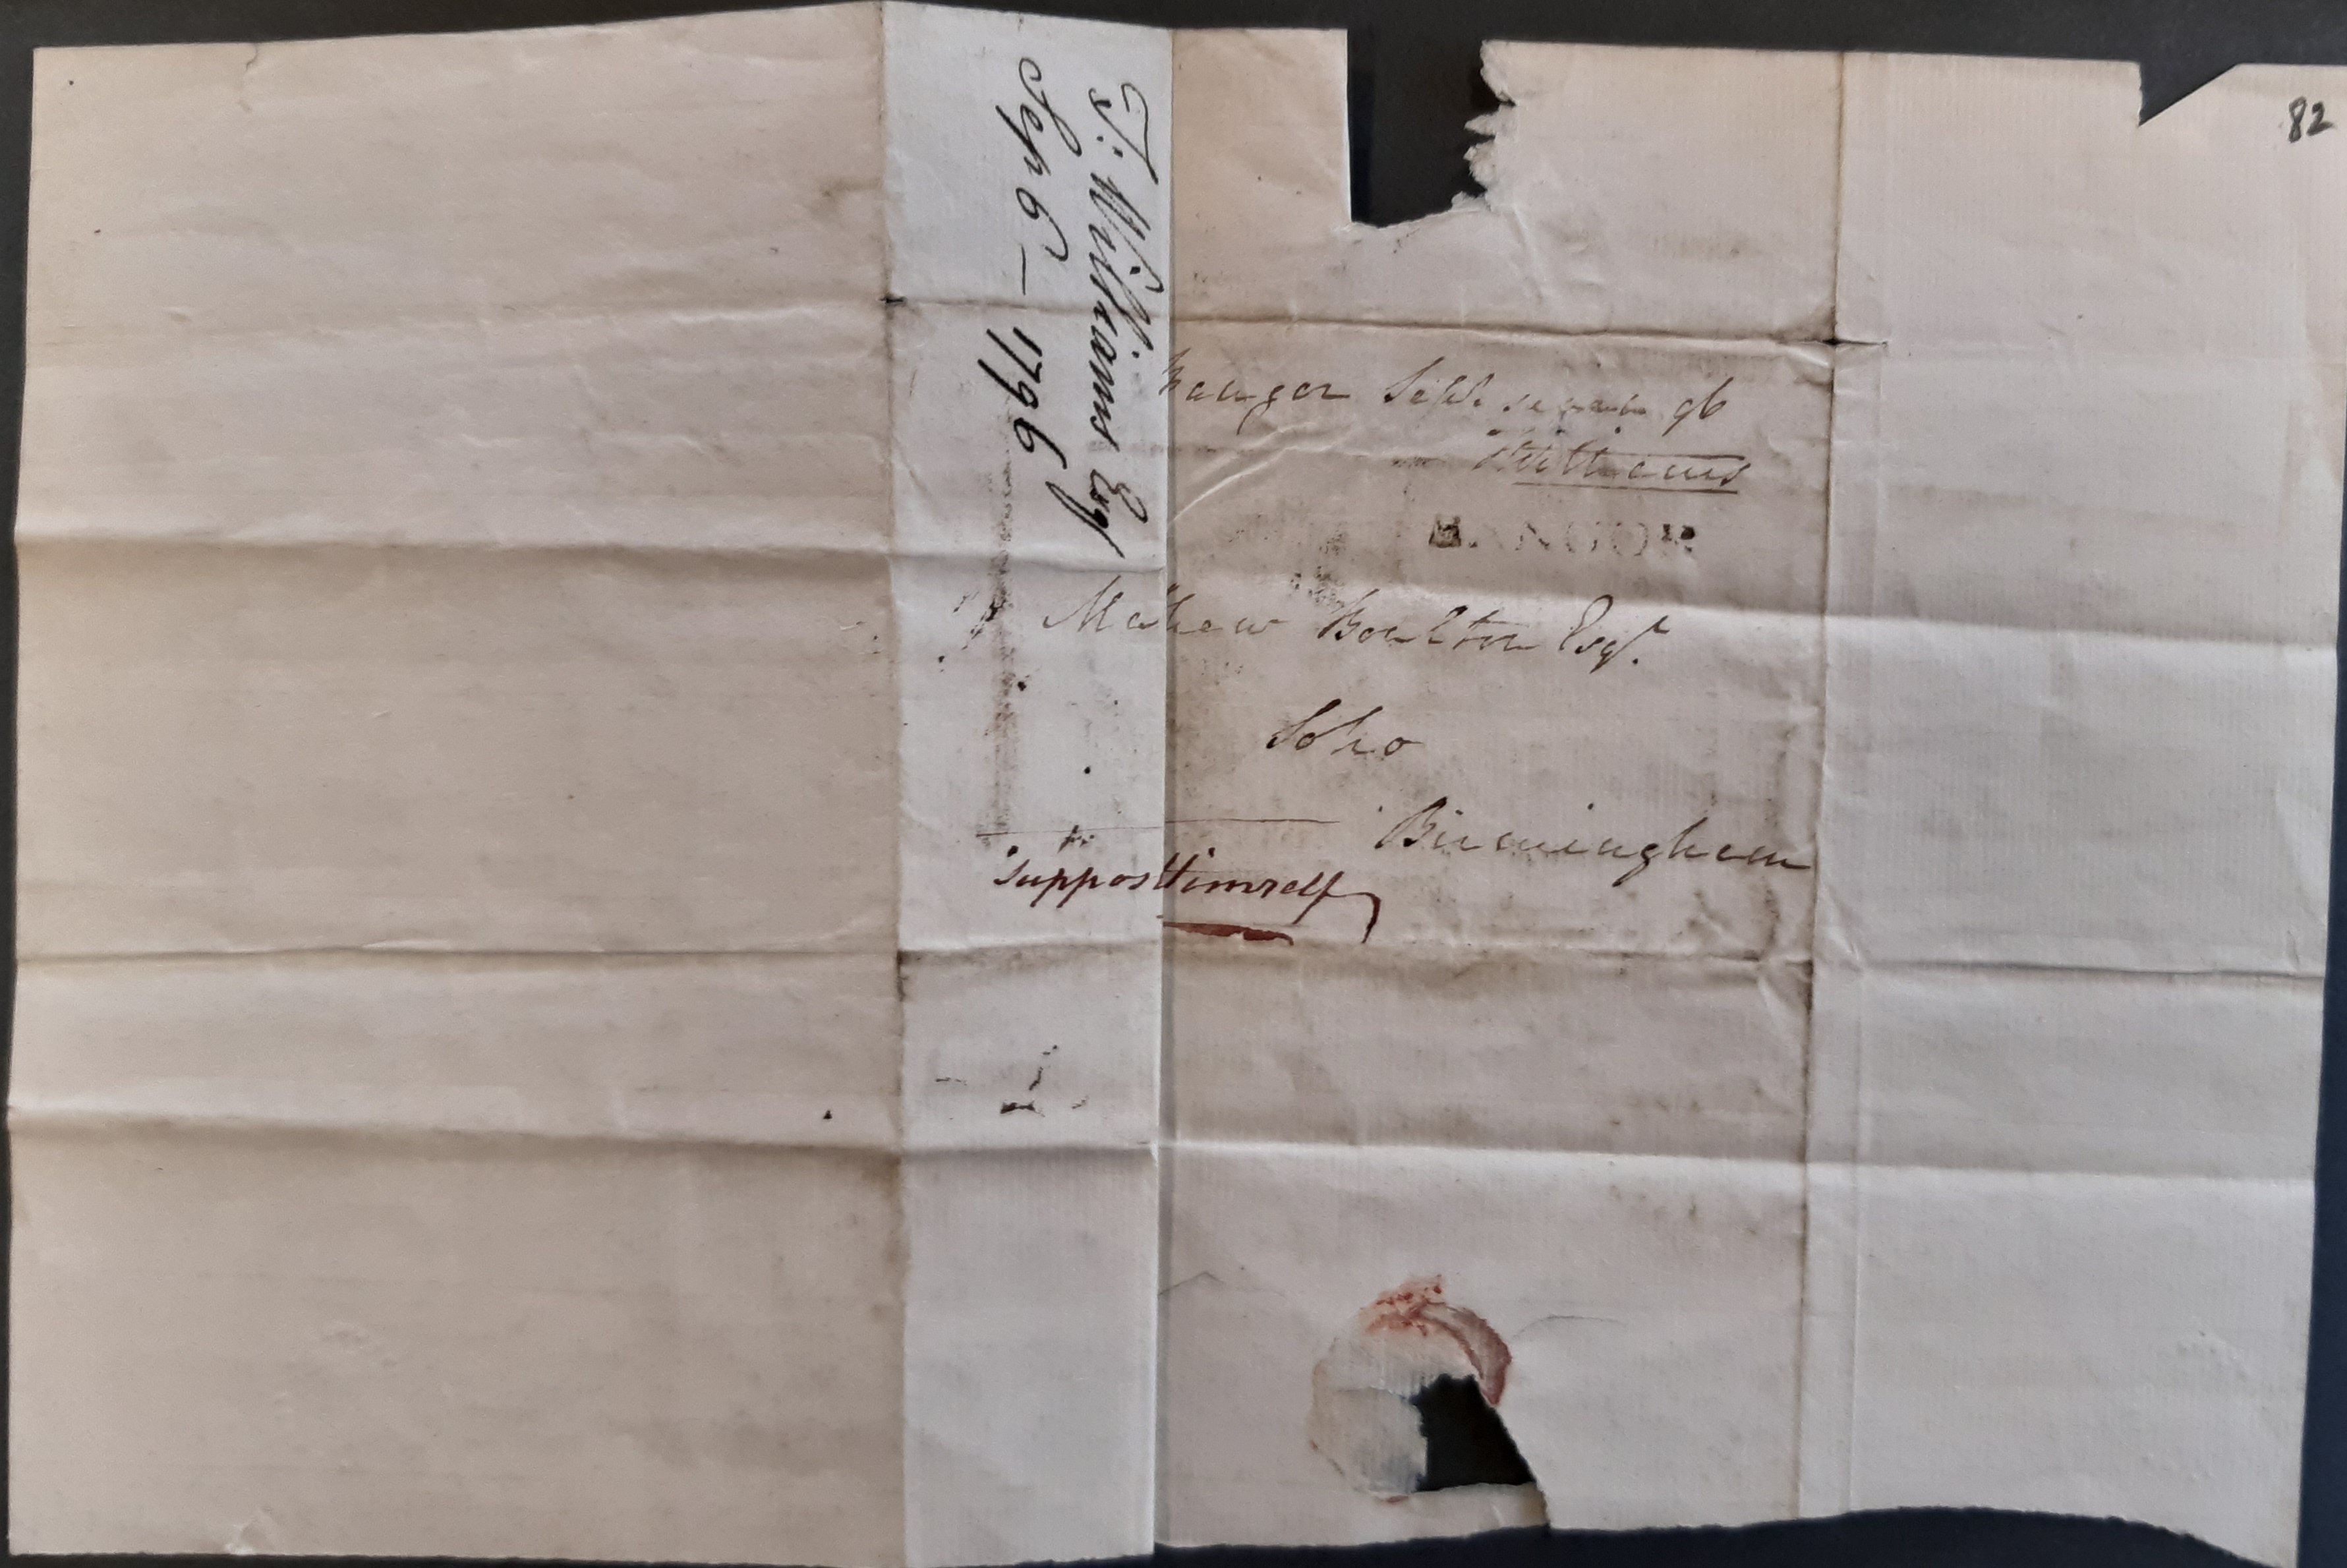 82
T. Williams Esq
Sep 6 — 1796
Bangor Sept. 96
Williams
BANGOR
Mathew Boulton Esqr.
Soho
Birmingham